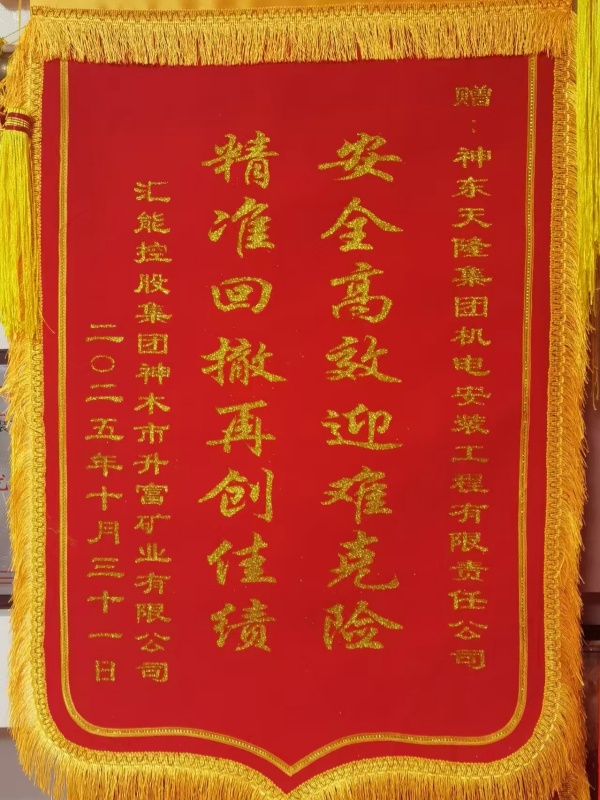 赠：神东天隆集团机电安装工程有限责任公司
安全高效迎难克险
精准回撤再创佳绩
汇能控股集团神木市升富矿业有限公司
二〇二五年十月三十一日